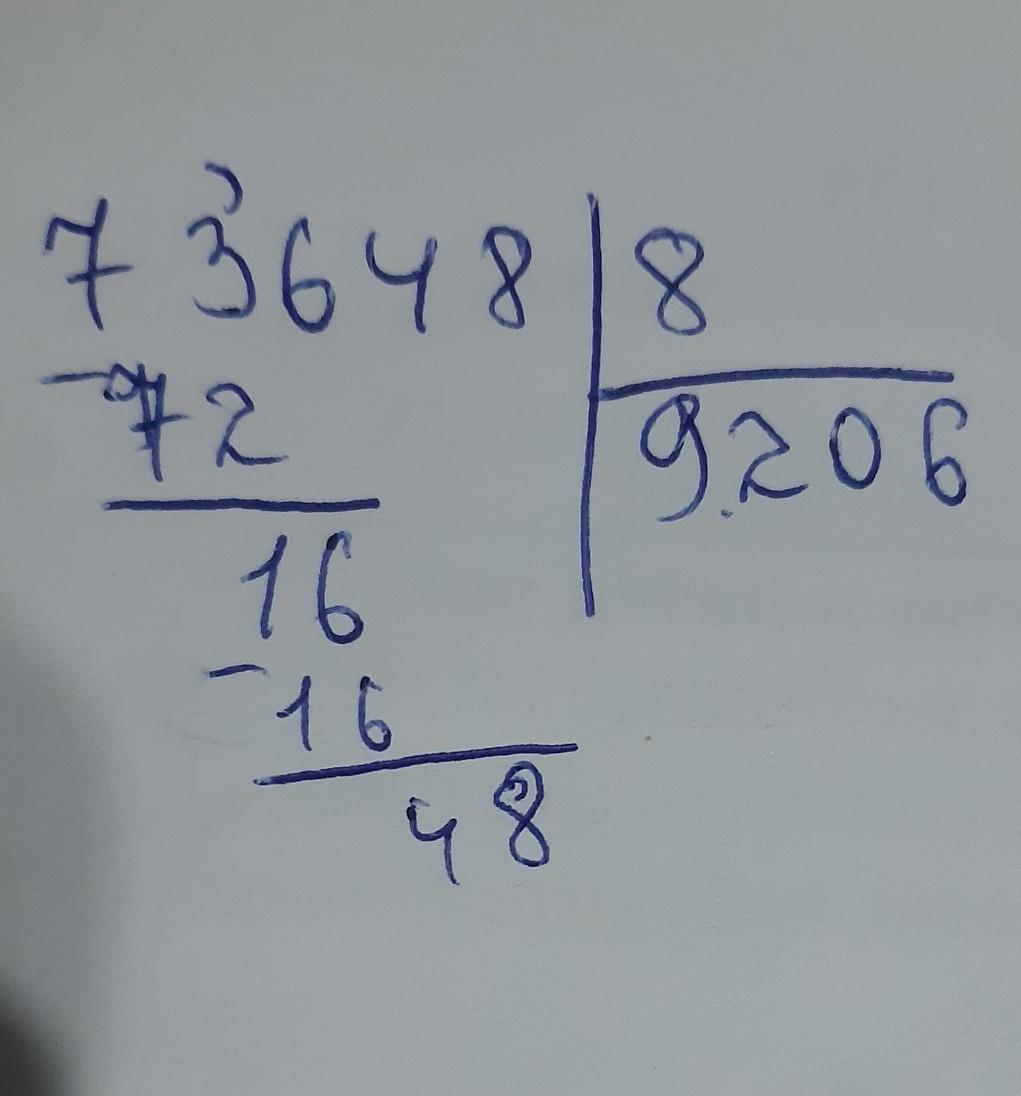 73648 | 8
- 72 9.206
16
- 16
48